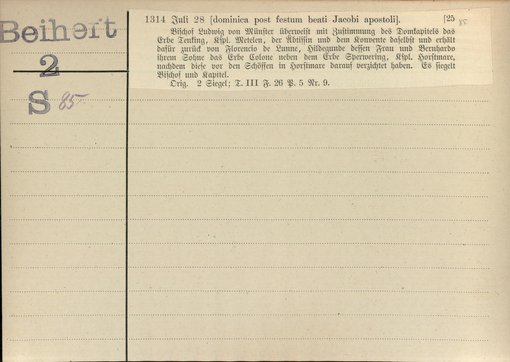 Beiheft
2
S 85
1314 Juli 28 [dominica post festum beati Jacobi apostoli]. [25 85
Bischof Ludwig von Münster überweist mit Zustimmung des Domkapitels das
Erbe Tenking, Kspl. Metelen, der Äbtissin und dem Konvente daselbst und erhält
dafür zurück von Florencio de Lunne, Hildegunde dessen Frau und Bernhardo
ihrem Sohne das Erbe Colone neben dem Erbe Sperwering, Kspl. Horstmare,
nachdem diese vor den Schöffen in Horstmare darauf verzichtet haben. Es siegelt
Bischof und Kapitel.
Orig. 2 Siegel; T. III F. 26 P. 5 Nr. 9.